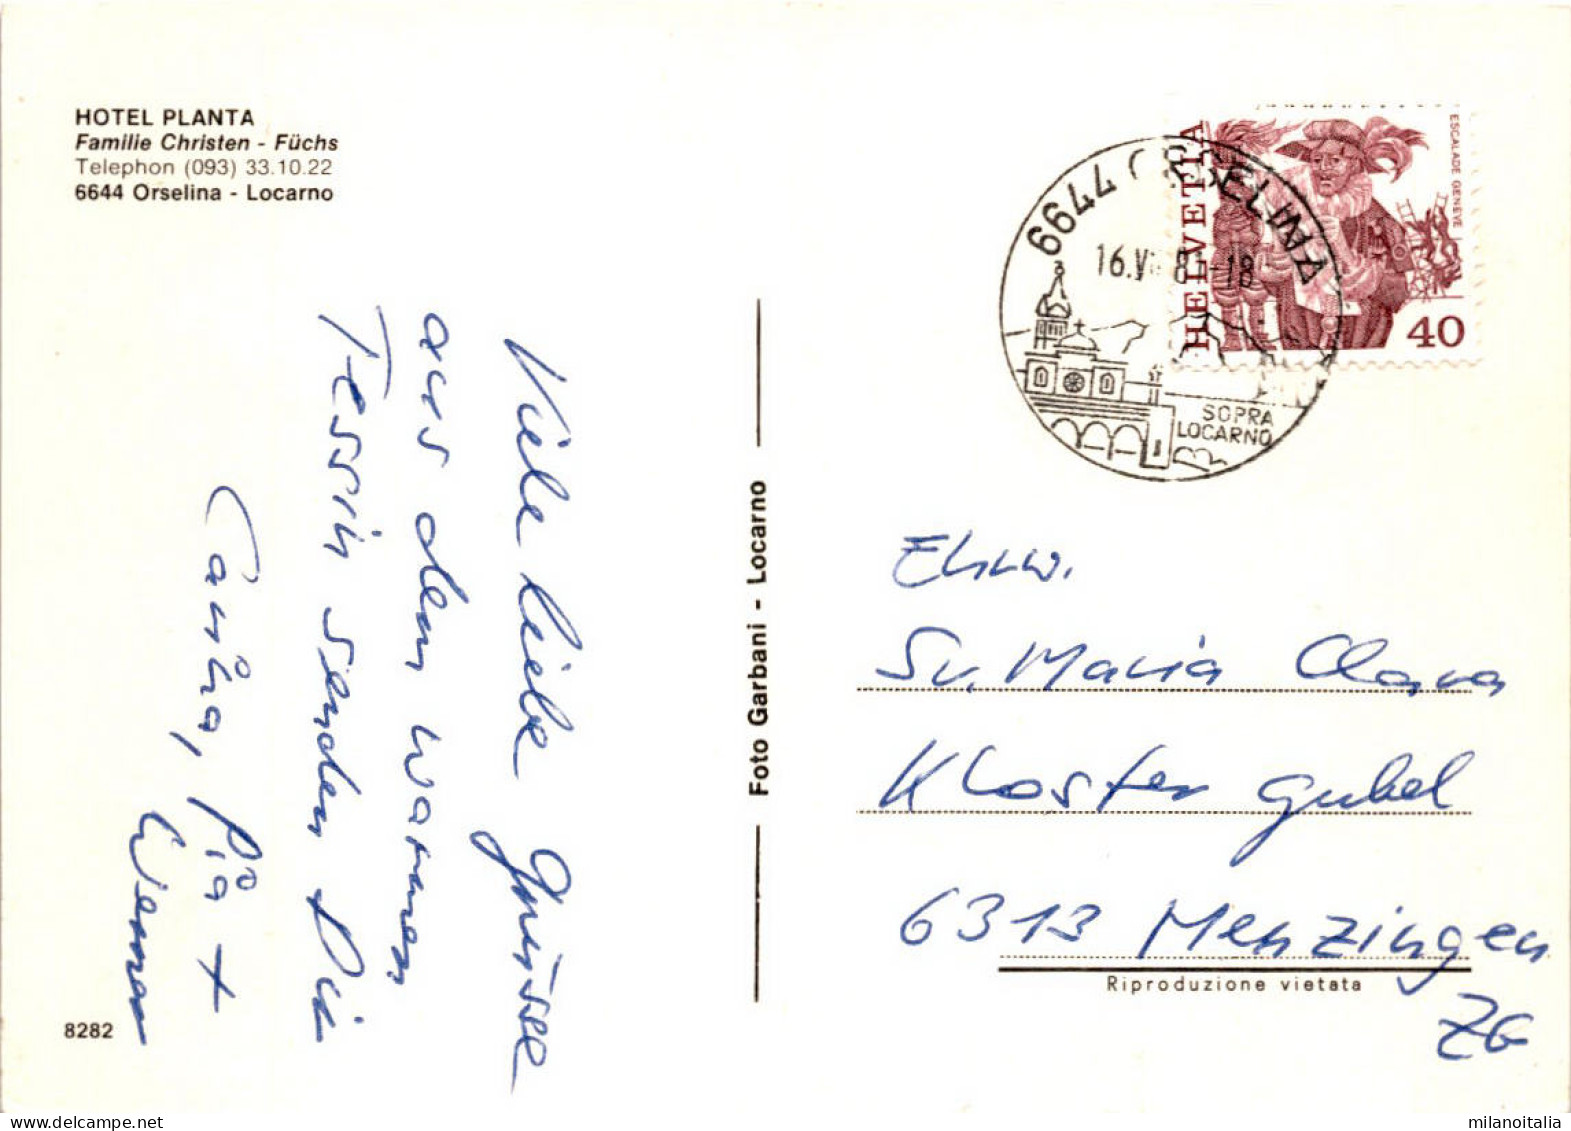 HOTEL PLANTA
Familie Christen - Füchs
Telephon (093) 33.10.22
6644 Orselina - Locarno
Viele liebe Grüsse
aus dem warmen
Tessin senden Dir
Carla, Pia +
Werner
8282
Foto Garbani - Locarno
6644 ORSELINA
16.V 8 -18
SOPRA
LOCARNO
HELVETIA
ESCALADE GENÈVE
40
Ehrw.
Sr. Maria Clara
Kloster Gubel
6313 Menzingen
ZG
Riproduzione vietata
milanoitalia